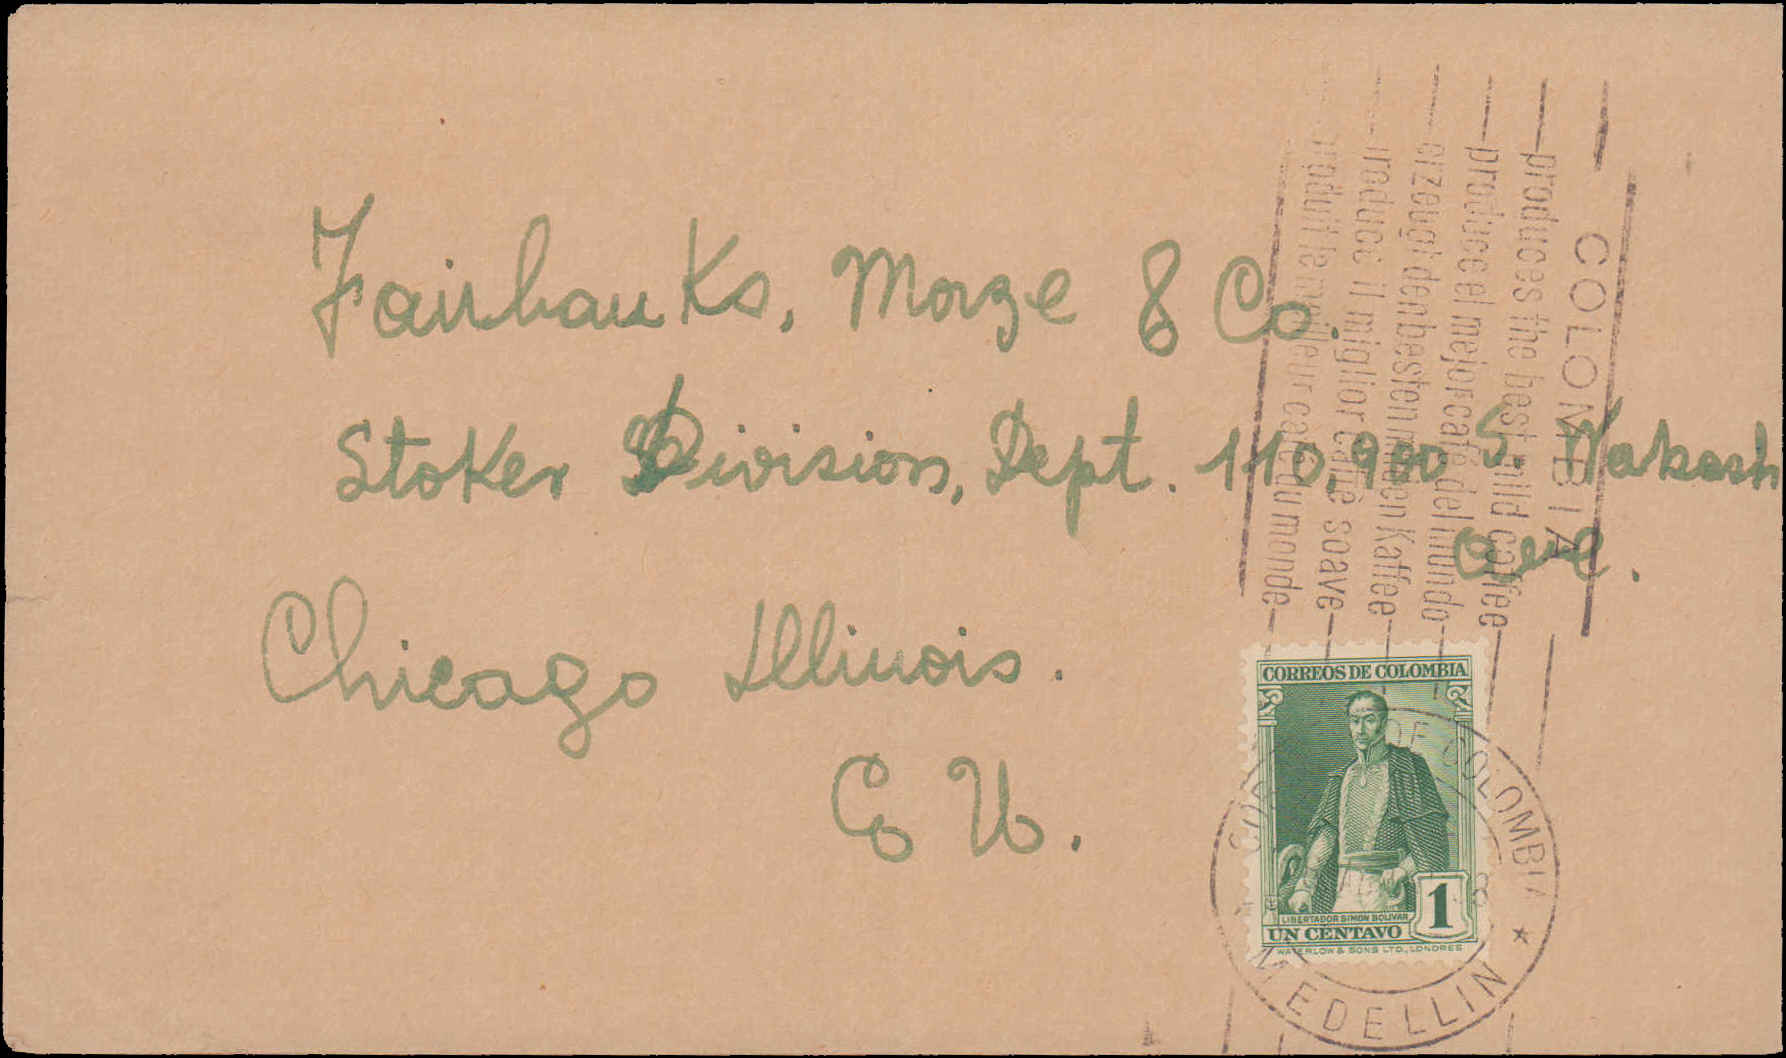 Fairbanks, Morze & Co.
Stoker Division, Dept. 110, 900 S. Wabash
Ave.
Chicago Illinois.
E U.
COLOMBIA
produces the best mild coffee
produce el mejor café del mundo
erzeugt den besten milden Kaffee
produce il miglior caffè soave
produit le meilleur café du monde
CORREOS DE COLOMBIA
LIBERTADOR SIMON BOLIVAR
UN CENTAVO 1
WATERLOW & SONS LTD., LONDRES
DE COLOMBIA
MEDELLIN